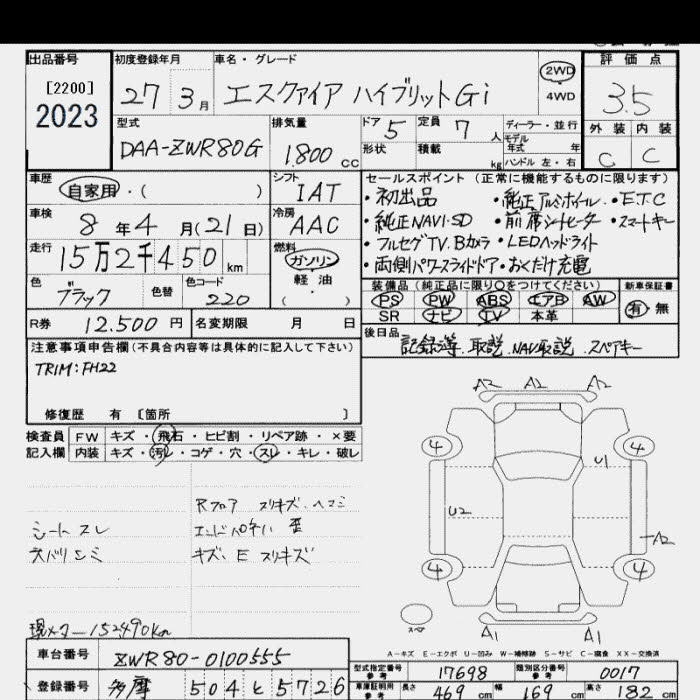 出品番号 初度登録年月 車名・グレード 2WD 4WD 評価点
[2200]
2023
27 3月 エスクァイア ハイブリットGi 3.5
型式 排気量 ドア 5 定員 7人 ディーラー・並行 外装 内装
DAA-ZWR80G 1.800cc 形状 積載 kg モデル年式 年式 ハンドル 左・右 C C
車歴 自家用・( ) シフト IAT
セールスポイント(正常に機能するものに限ります)
・初出品 ・純正アルミホイール ・ETC
車検 8年4月(21日) 冷房 AAC
・純正NAVI・SD ・前席シートヒーター ・スマートキー
・フルセグTV.Bカメラ ・LEDヘッドライト
走行 15万2千450km 燃料 ガソリン 軽油 ( )
・両側パワースライドドア・おくだけ充電
色 ブラック 色替 色コード 220
装備品(純正品に限り○をつけてください) 新車保証書
PS PW ABS エアB AW 有 無
SR ナビ TV 本革
R券 12.500円 名変期限 月 日
後日品 記録簿.取説.NAV取説.スペアキー
注意事項申告欄(不具合内容等は具体的に記入して下さい)
TRIM:FH22
修復歴 有 [箇所 ]
検査員 FW キズ・飛石・ヒビ割・リペア跡・×要
記入欄 内装 キズ・汚レ・コゲ・穴・スレ・キレ・破レ
A2 A2 A2
4 4
U1
U2
A2
4 4
Rフロア スリキズ.ヘコミ
シートスレ エンドパネル 歪
キズ、E スリキズ
現メーター152490km
スペア
A1 A1
A-キズ E-エクボ U-凹み W-補修跡 S-サビ C-腐食 XX-交換済
車台番号 ZWR80-0100555
型式指定番号 参考 17698 類別区分番号 参考 0017
登録番号 多摩 504 と 5726
車庫証明用 参考 長さ 469cm 幅 169cm 高さ 182cm